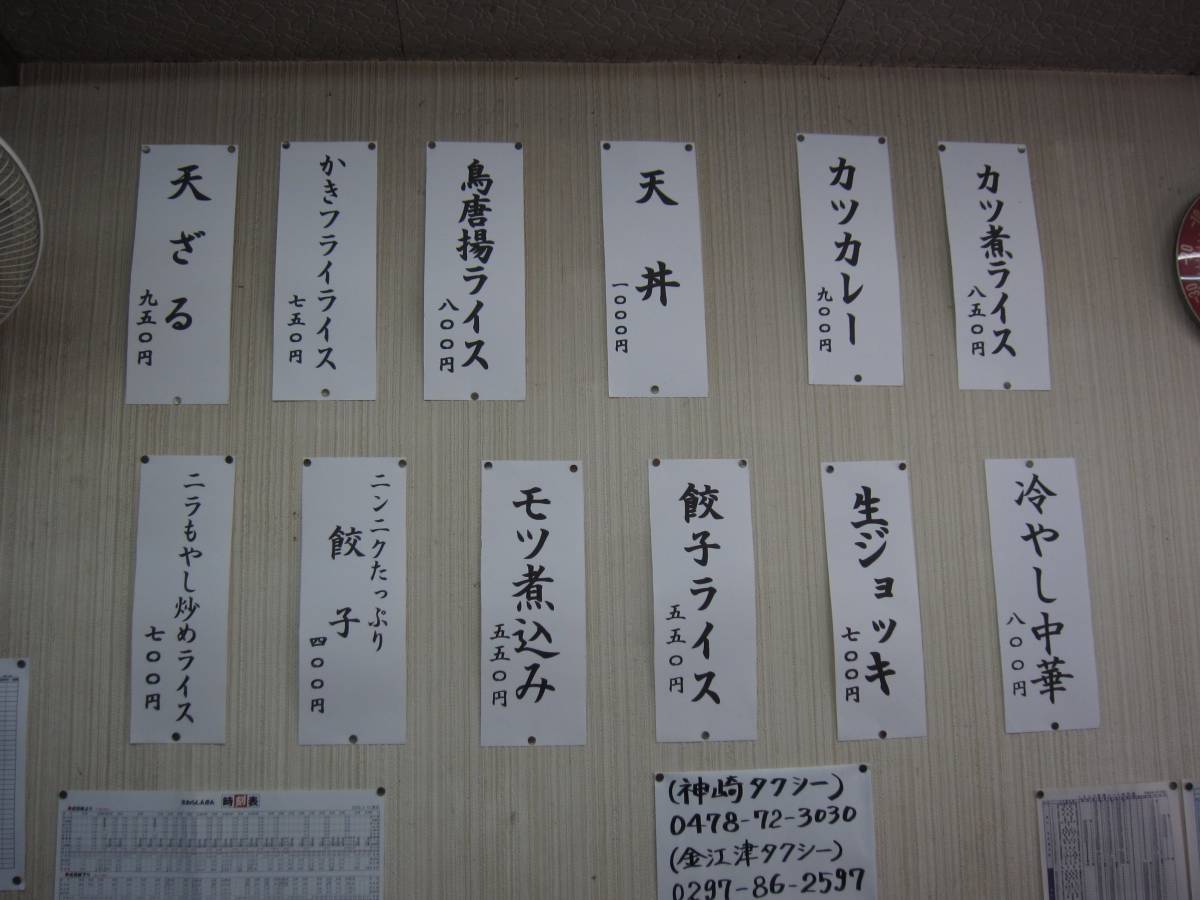 カツ煮ライス
八五〇円
カツカレー
九〇〇円
天丼
一〇〇〇円
鳥唐揚ライス
八〇〇円
かきフライライス
七五〇円
天ざる
九五〇円
冷やし中華
八〇〇円
生ジョッキ
七〇〇円
餃子ライス
五五〇円
モツ煮込み
五五〇円
ニンニクたっぷり
餃子
四〇〇円
ニラもやし炒めライス
七〇〇円
時刻表
(神崎タクシー)
0478-72-3030
(金江津タクシー)
0297-86-2597